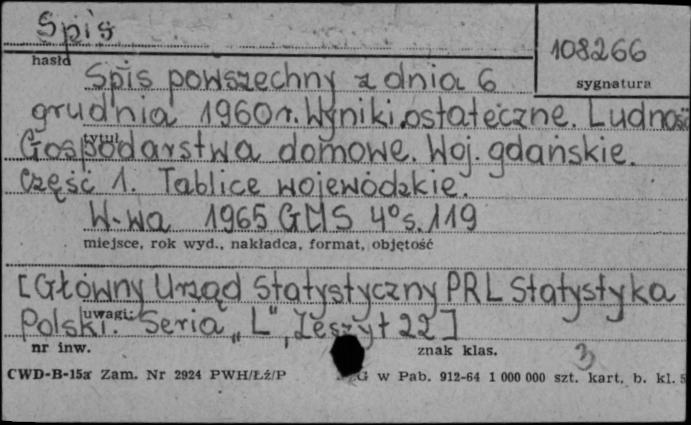 Spis
108266
hasło
sygnatura
Spis powszechny z dnia 6
grudnia 1960 r. Wyniki ostateczne. Ludność
tytuł
Gospodarstwa domowe. Woj. gdańskie.
Część 1. Tablice wojewódzkie.
W-wa 1965 GUS 4° s. 119
miejsce, rok wyd., nakładca, format, objętość
[Główny Urząd Statystyczny PRL Statystyka
uwagi:
Polski. Seria „L", Zeszyt 22]
nr inw.
znak klas.
3
CWD-B-15a Zam. Nr 2924 PWH/Łź/P
G w Pab. 912-64 1 000 000 szt. kart. b. kl. 5